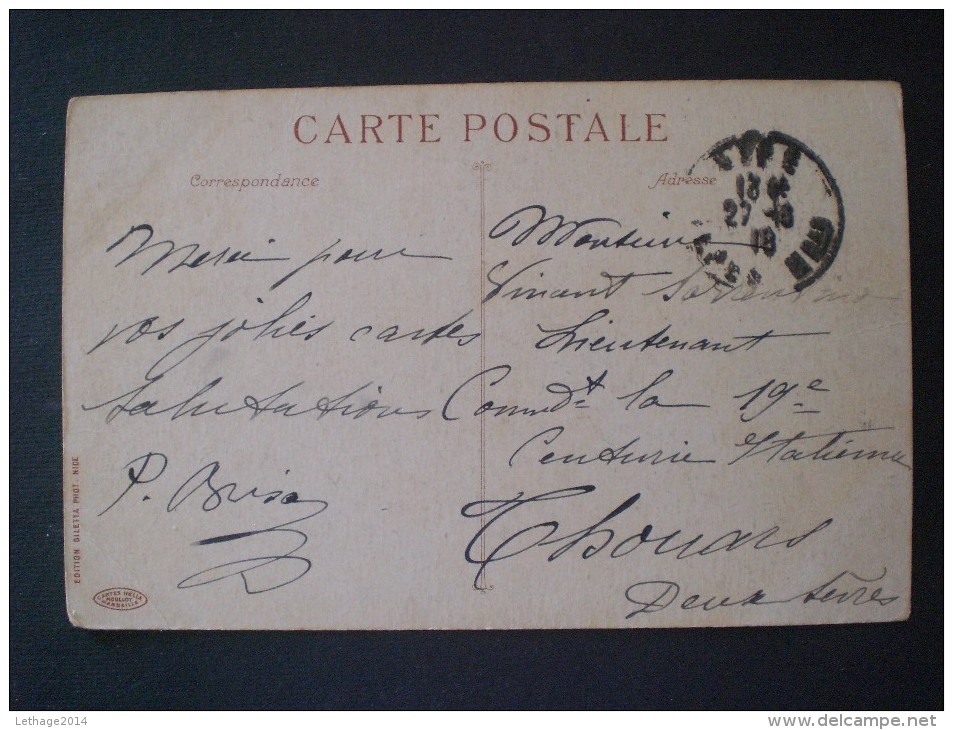 CARTE POSTALE
Correspondance
Adresse
Merci pour
vos jolies cartes
salutations
P. Brisa
Monsieur
Vincent
Lieutenant
Commdt la 19e
Centurie Italienne
Thouars
Deux Sèvres
27
18
EDITION DILETTA PHOT. - NICE
CARTES HELIA
MOULLOT
MARSEILLE
Lethage2014
www.delcampe.net